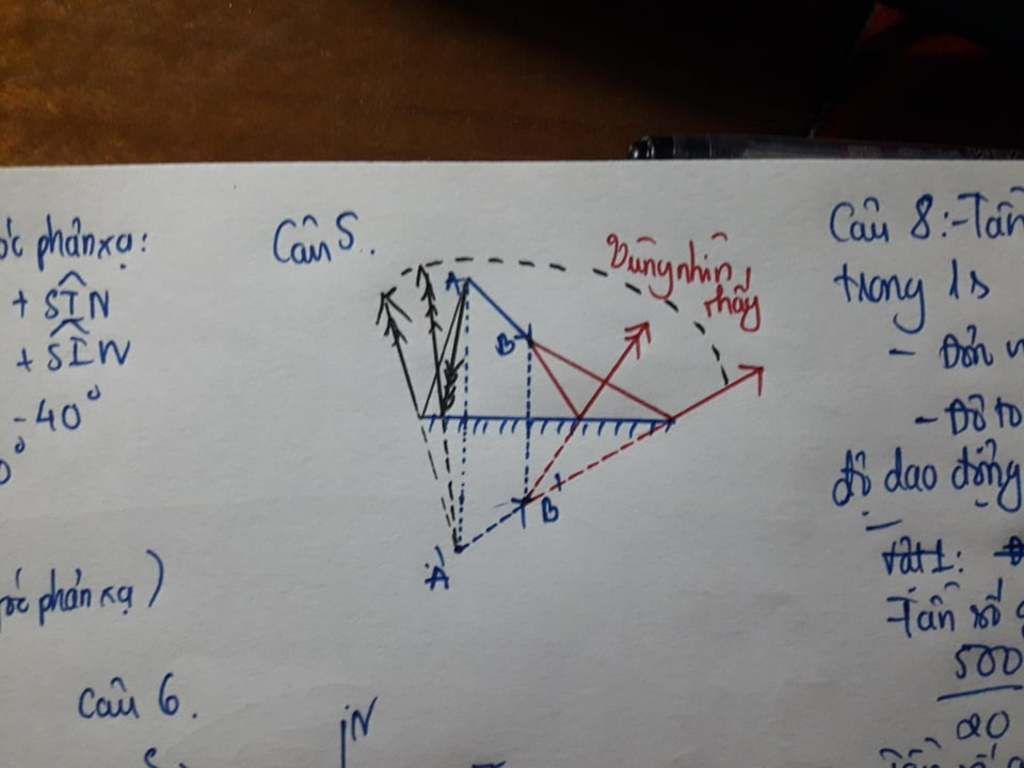 phản xạ:
+ SÎN
+ SÎN
- 40°
0°
góc phản xạ)
Câu 5..
Vùng nhìn
thấy
A
B
B'
A'
Câu 6.
S
N
Câu 8:-Tần
trong 1s
- Đơn
- Độ to
độ dao động
Vật 1:
-Tần số
500
20
Tần số